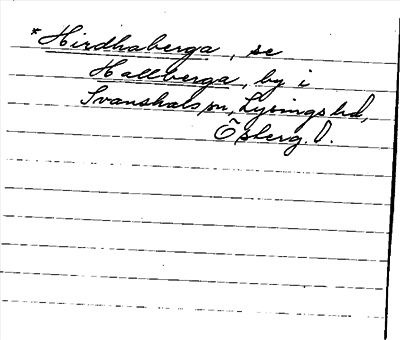 *Hirdhaberga, se
Hallberga, by i
Svanshals sn, Lysings hd,
Österg.